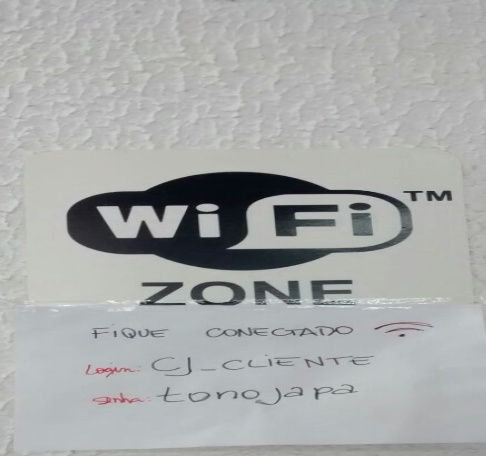 WiFi TM
ZONE
FIQUE CONECTADO
Login: CJ_CLIENTE
senha: tonojapa